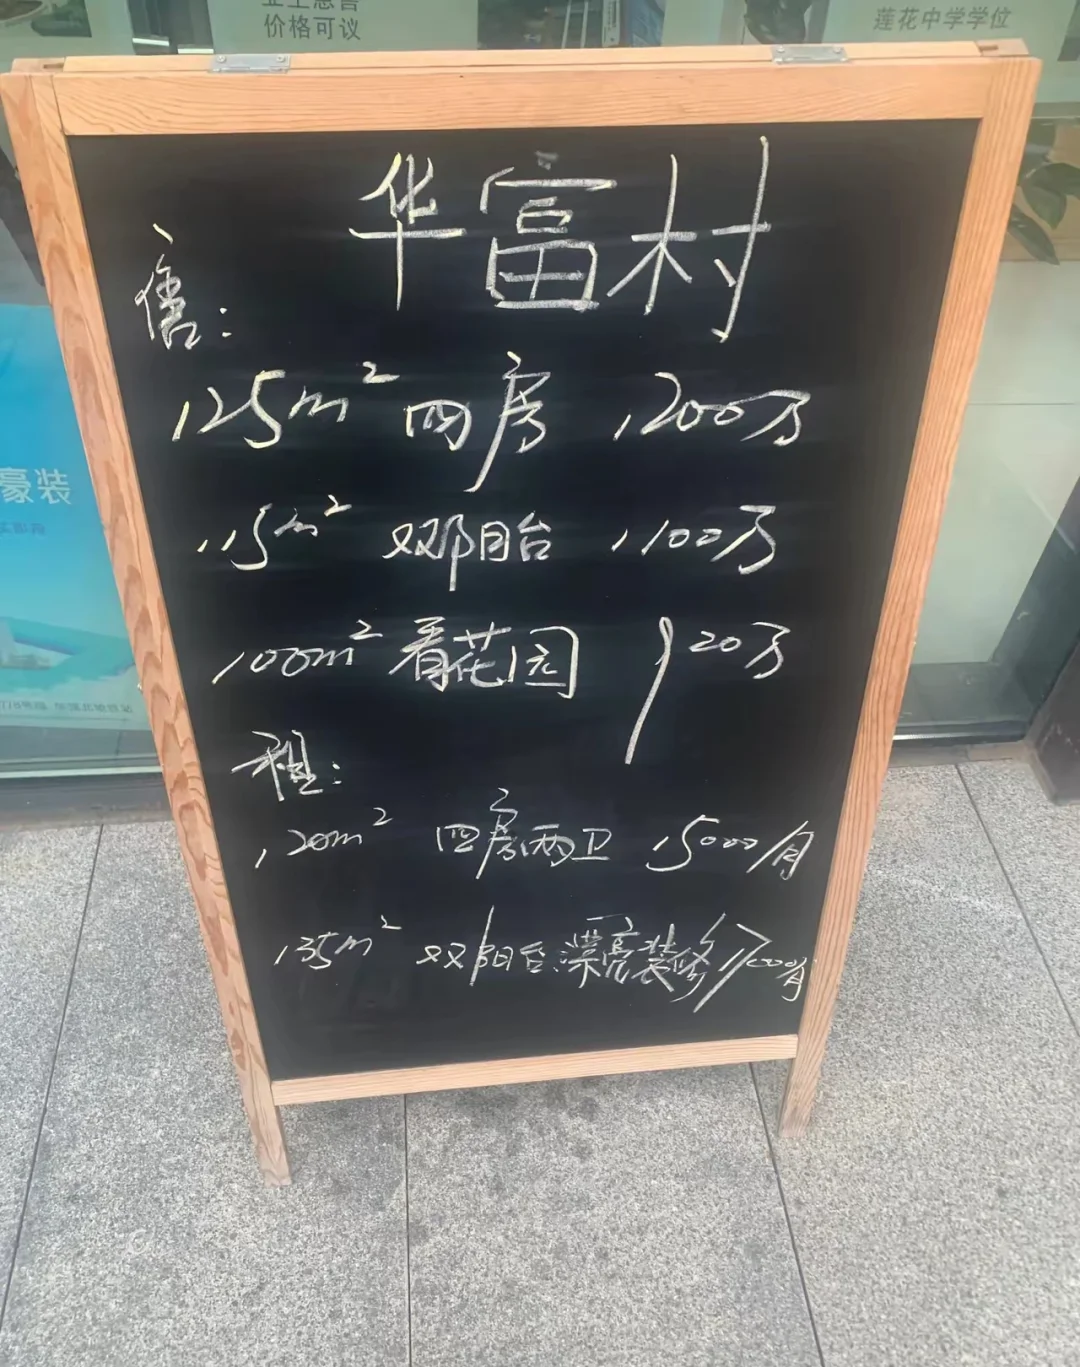 价格可议
莲花中学学位
华富村
售:
125m² 四房 1200万
115m² 双阳台 1100万
100m² 看花园 920万
租:
120m² 四房两卫 15000/月
135m² 双阳台漂亮装修 17000/月
豪装